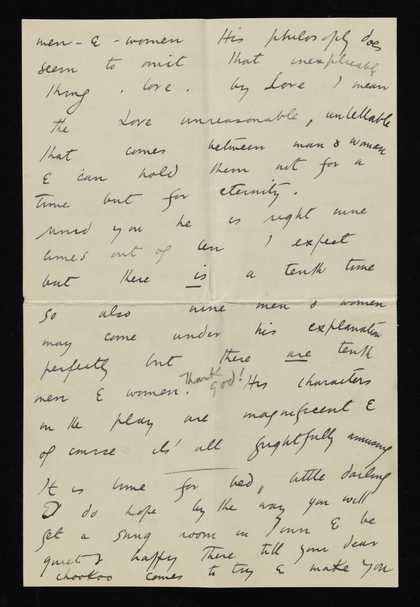 men - & - women His philosophy does
seem to omit that inexplicable
thing . love . by Love I mean
the Love unreasonable,
that comes between man & woman
& can hold them not for a
time but for eternity.
mind you he is right nine
times out of ten I expect
but there is a tenth time
so also nine men & women
may come under his explanation
perfectly but there are tenth
men & women. Thank God! His characters
in the play are magnificent &
of course it's all frightfully amusing
It is time for bed, little darling
I do hope by the way you will
get a snug room in Town & be
quiet & happy there till your dear
comes to try & make you